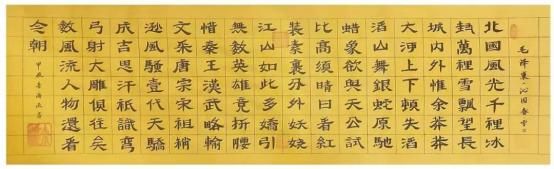 毛澤東沁园春雪
北國風光千裡冰
封萬裡雪飄望長
城内外惟余莽莽
大河上下頓失滔
滔山舞銀蛇原馳
蜡象欲與天公試
比高須晴日看紅
裝素裹分外妖娆
江山如此多嬌引
無數英雄竟折腰
惜秦王漢武略輸
文采唐宗宋祖稍
遜風騷壹代天驕
成吉思汗祗識彎
弓射大雕俱往矣
數風流人物還看
今朝
甲辰